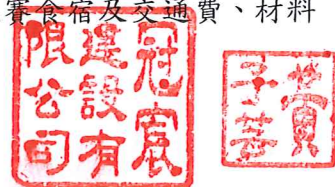 賽食宿及交通費、材料
冠宸
建設有
限公司
黄
子芸